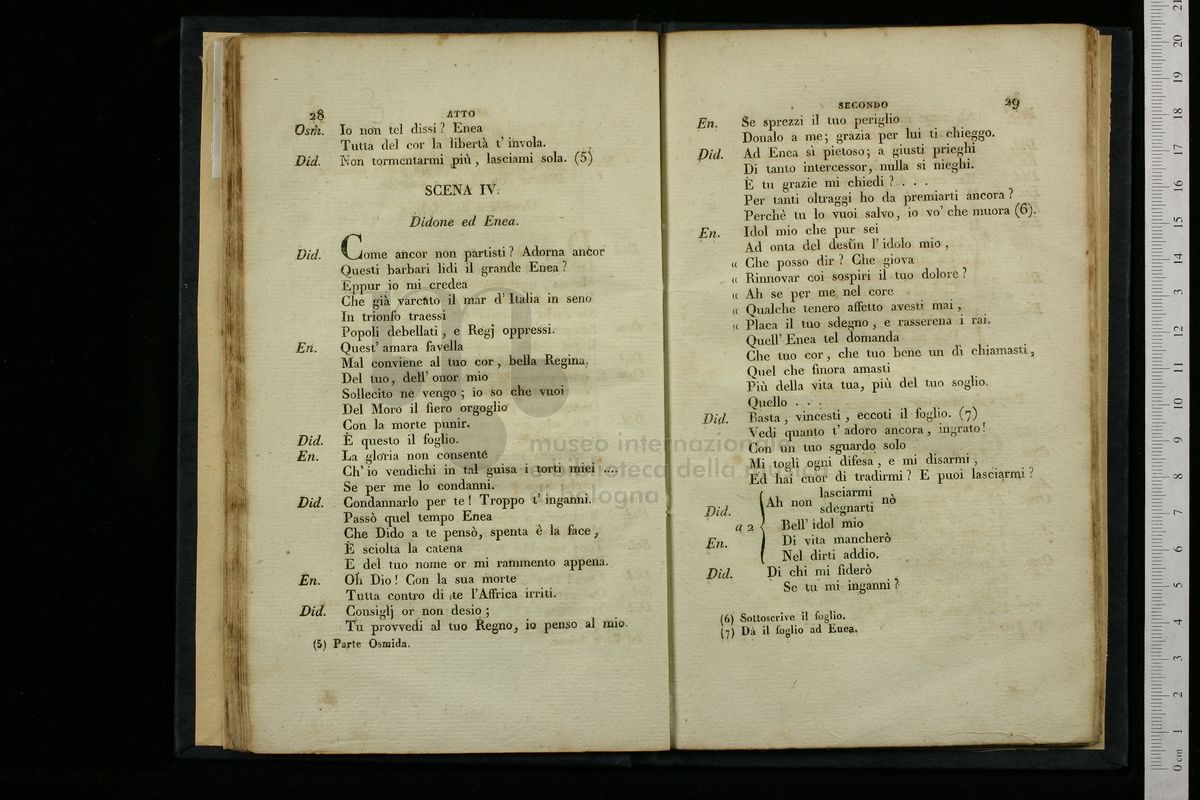 28
ATTO
Osm. Io non tel dissi? Enea
Tutta del cor la libertà t' invola.
Did. Non tormentarmi più, lasciami sola. (5)
SCENA IV.
Didone ed Enea.
Did. Come ancor non partisti? Adorna ancor
Questi barbari lidi il grande Enea?
Eppur io mi credea
Che già varcato il mar d' Italia in seno
In trionfo traessi
Popoli debellati, e Regj oppressi.
En. Quest' amara favella
Mal conviene al tuo cor, bella Regina.
Del tuo, dell' onor mio
Sollecito ne vengo; io so che vuoi
Del Moro il fiero orgoglio
Con la morte punir.
Did. È questo il foglio.
En. La gloria non consente
Ch' io vendichi in tal guisa i torti miei ....
Se per me lo condanni.
Did. Condannarlo per te! Troppo t' inganni.
Passò quel tempo Enea
Che Dido a te pensò, spenta è la face,
È sciolta la catena
E del tuo nome or mi rammento appena.
En. Oh Dio! Con la sua morte
Tutta contro di te l'Affrica irriti.
Did. Consiglj or non desio;
Tu provvedi al tuo Regno, io penso al mio.
(5) Parte Osmida.
SECONDO
29
En. Se sprezzi il tuo periglio
Donalo a me; grazia per lui ti chieggo.
Did. Ad Enea sì pietoso; a giusti prieghi
Di tanto intercessor, nulla si nieghi.
È tu grazie mi chiedi? . . .
Per tanti oltraggi ho da premiarti ancora?
Perchè tu lo vuoi salvo, io vo' che muora (6).
En. Idol mio che pur sei
Ad onta del destin l' idolo mio,
« Che posso dir? Che giova
« Rinnovar coi sospiri il tuo dolore?
« Ah se per me nel core
« Qualche tenero affetto avesti mai,
« Placa il tuo sdegno, e rasserena i rai.
Quell' Enea tel domanda
Che tuo cor, che tuo bene un dì chiamasti,
Quel che finora amasti
Più della vita tua, più del tuo soglio.
Quello . . .
Did. Basta, vincesti, eccoti il foglio. (7)
Vedi quanto t' adoro ancora, ingrato!
Con un tuo sguardo solo
Mi togli ogni difesa, e mi disarmi,
Ed hai cuor di tradirmi? E puoi lasciarmi?
lasciarmi
Did. Ah non sdegnarti nò
a 2 Bell' idol mio
En. Di vita mancherò
Nel dirti addio.
Did. Di chi mi fiderò
Se tu mi inganni?
(6) Sottoscrive il foglio.
(7) Dà il foglio ad Enea.
museo internazionale
e biblioteca della musica
di bologna
0 cm 1 2 3 4 5 6 7 8 9 10 11 12 13 14 15 16 17 18 19 20 21